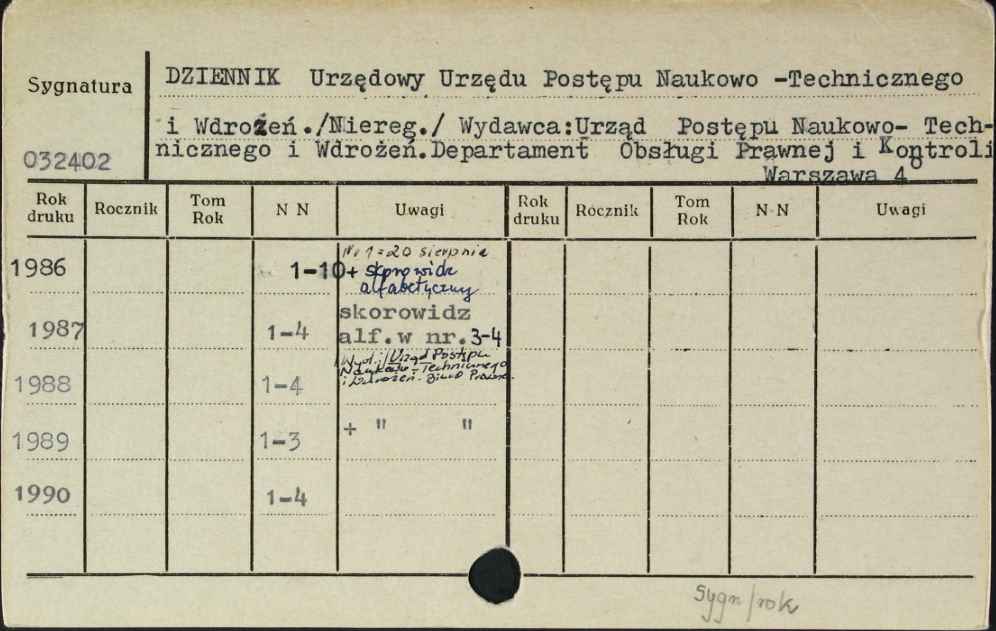 Sygnatura
DZIENNIK Urzędowy Urzędu Postępu Naukowo -Technicznego
i Wdrożeń./Niereg./ Wydawca:Urząd Postępu Naukowo- Tech-
032402
nicznego i Wdrożeń.Departament Obsługi Prawnej i Kontroli
Warszawa 4°
Rok druku Rocznik Tom Rok N N Uwagi Rok druku Rocznik Tom Rok N N Uwagi
Nr 1=20 sierpnia
1986 1-10+ skorowidz
alfabetyczny
skorowidz
1987 1-4 alf.w nr.3-4
Wyd.:/Urząd Postępu
Naukowo-Technicznego
1988 1-4 i Wdrożeń. Biuro Prawne.
1989 1-3 + " "
1990 1-4
Sygn/rok